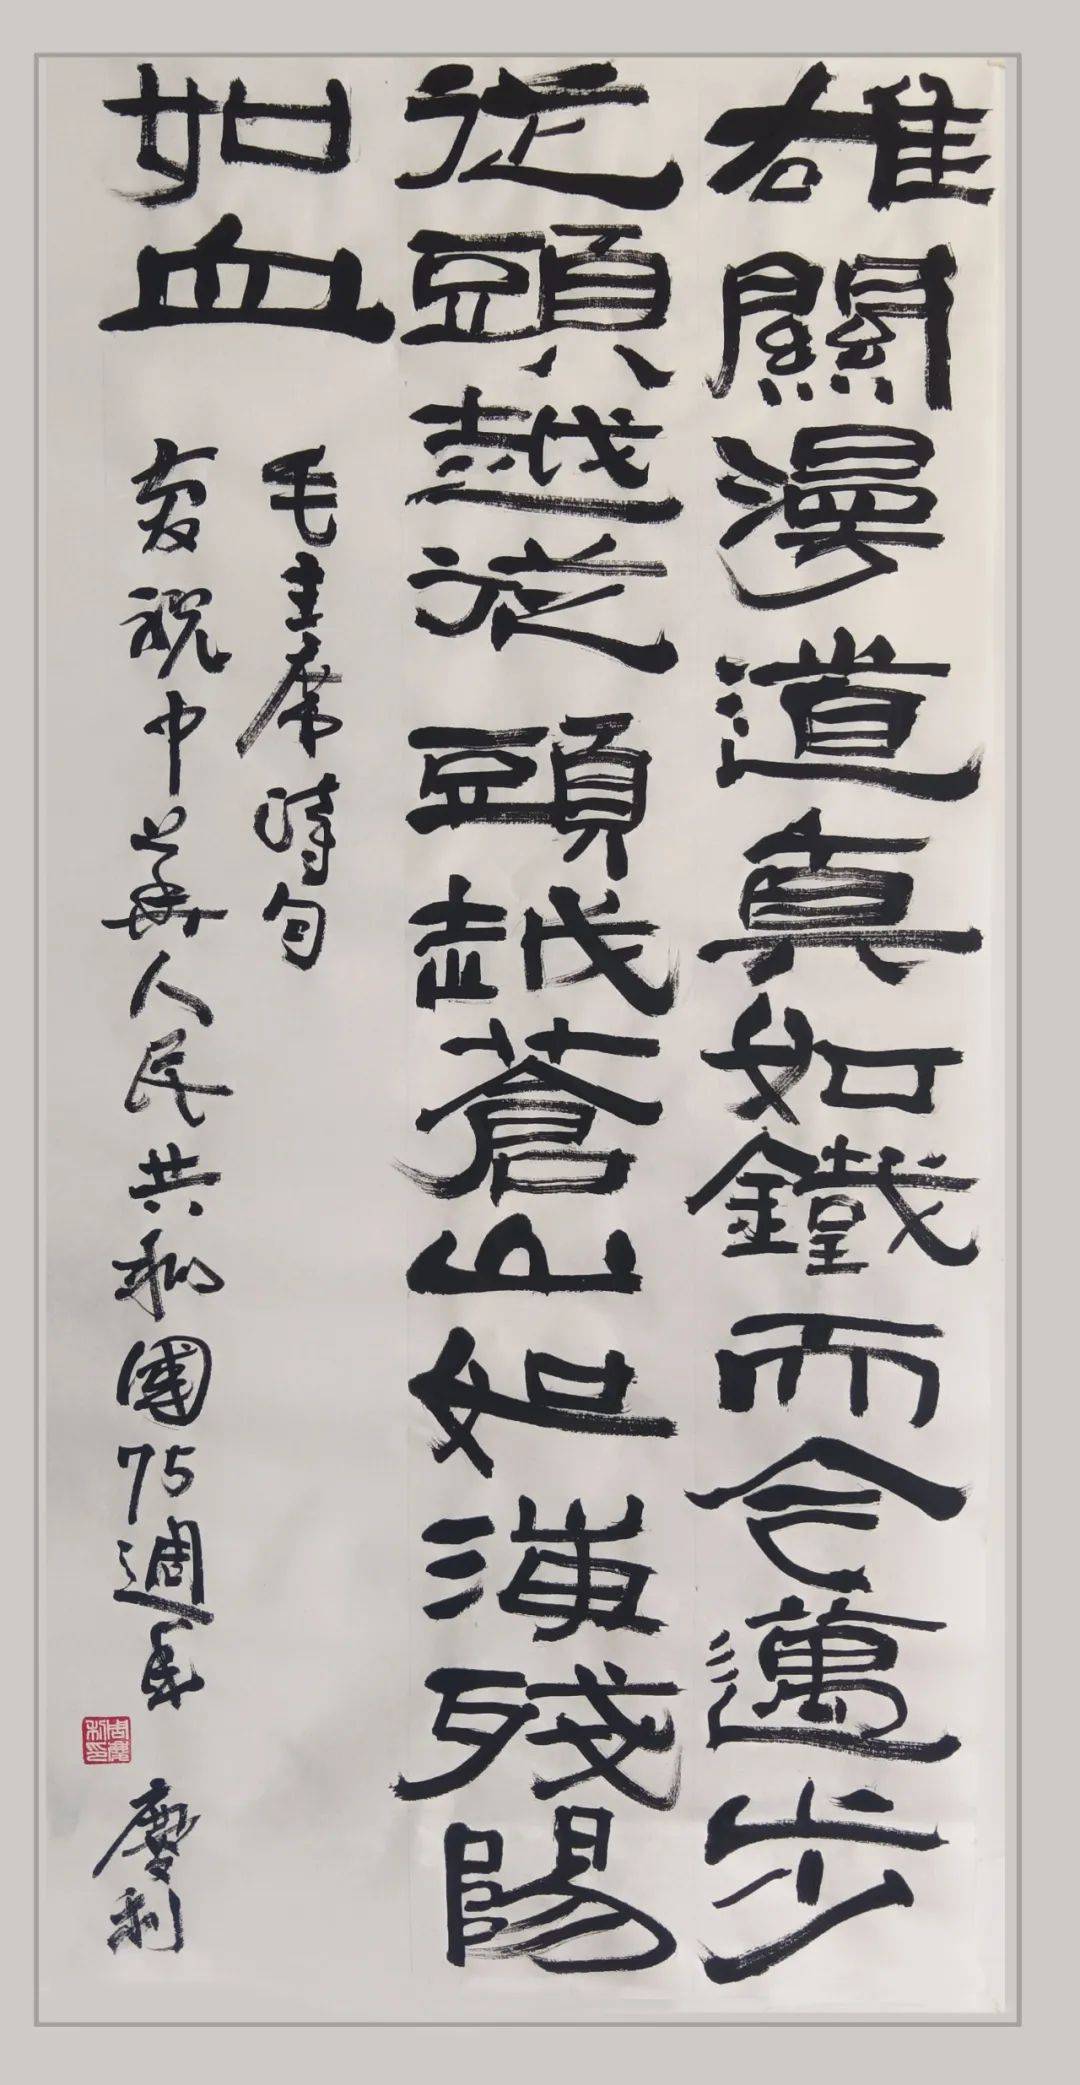 雄關漫道真如鐵而今邁步
從頭越從頭越蒼山如海殘陽
如血
毛主席詩句
慶祝中華人民共和國75週年
慶利
周慶利印